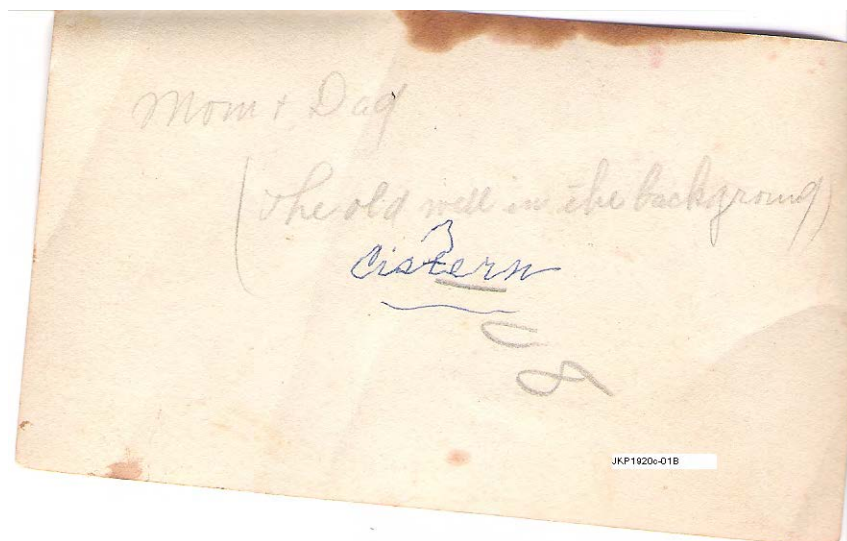 Mom + Dad
(The old well in the background)
cistern
JKP1920c-01B